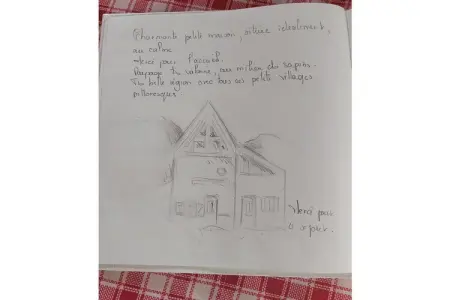 Charmante petite maison, située idéalement,
au calme
Merci pour l'accueil.
Paysage très valaire, au milieu des sapins.
Très belle région avec tous ces petits villages
pittoresques
Merci pour
ce séjour.